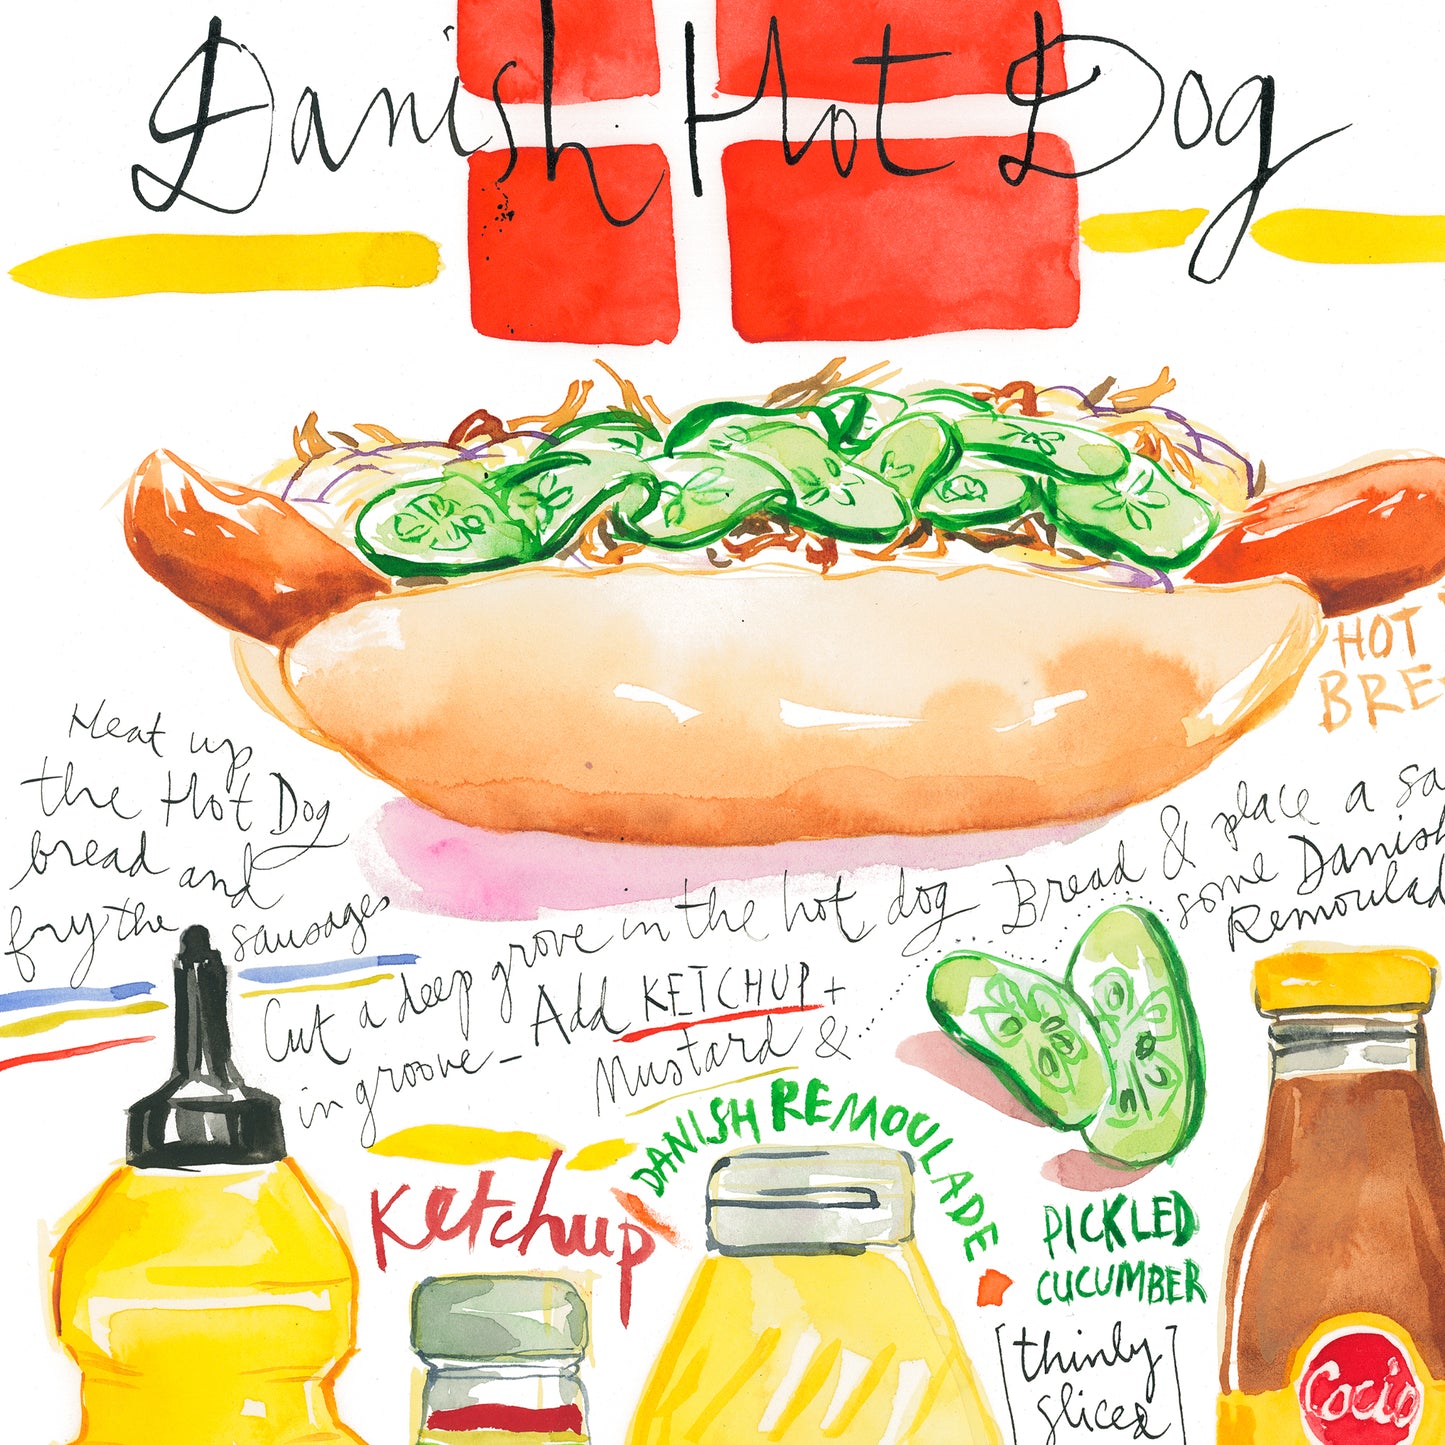 Danish Hot Dog
HOT
BRE
Heat up
the Hot Dog
bread and
fry the sausages
Cut a deep grove in the hot dog Bread & place a sa
in groove - Add KETCHUP +
Mustard &
some Danish
Remoulad
Ketchup
DANISH REMOULADE
PICKLED
CUCUMBER
[thinly
slices]
Cocio